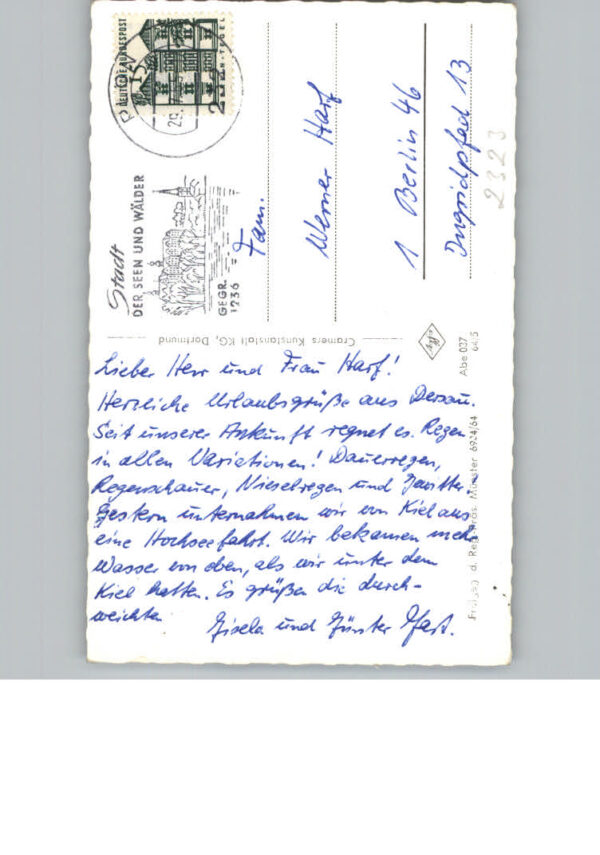 Lieber Herr und Frau Harf!
Herzliche Urlaubsgrüße aus Dersau.
Seit unserer Ankunft regnet es. Regen
in allen Variationen! Dauerregen,
Regenschauer, Nieselregen und Gewitter.
Gestern unternahmen wir von Kiel aus
eine Hochseefahrt. Wir bekamen mehr
Wasser von oben, als wir unter dem
Kiel hatten. Es grüßen die durch-
weichten
Gisela und Günter
Fam.
Werner Harf
1 Berlin 46
Ingridpfad 13
2323
DEUTSCHE BUNDESPOST
15
Stadt
DER SEEN UND WÄLDER
GEGR.
1236
Cramers Kunstanstalt KG, Dortmund
Abe 037
64/5
Freigeg. d. Reg. Präs. Münster 6924/64